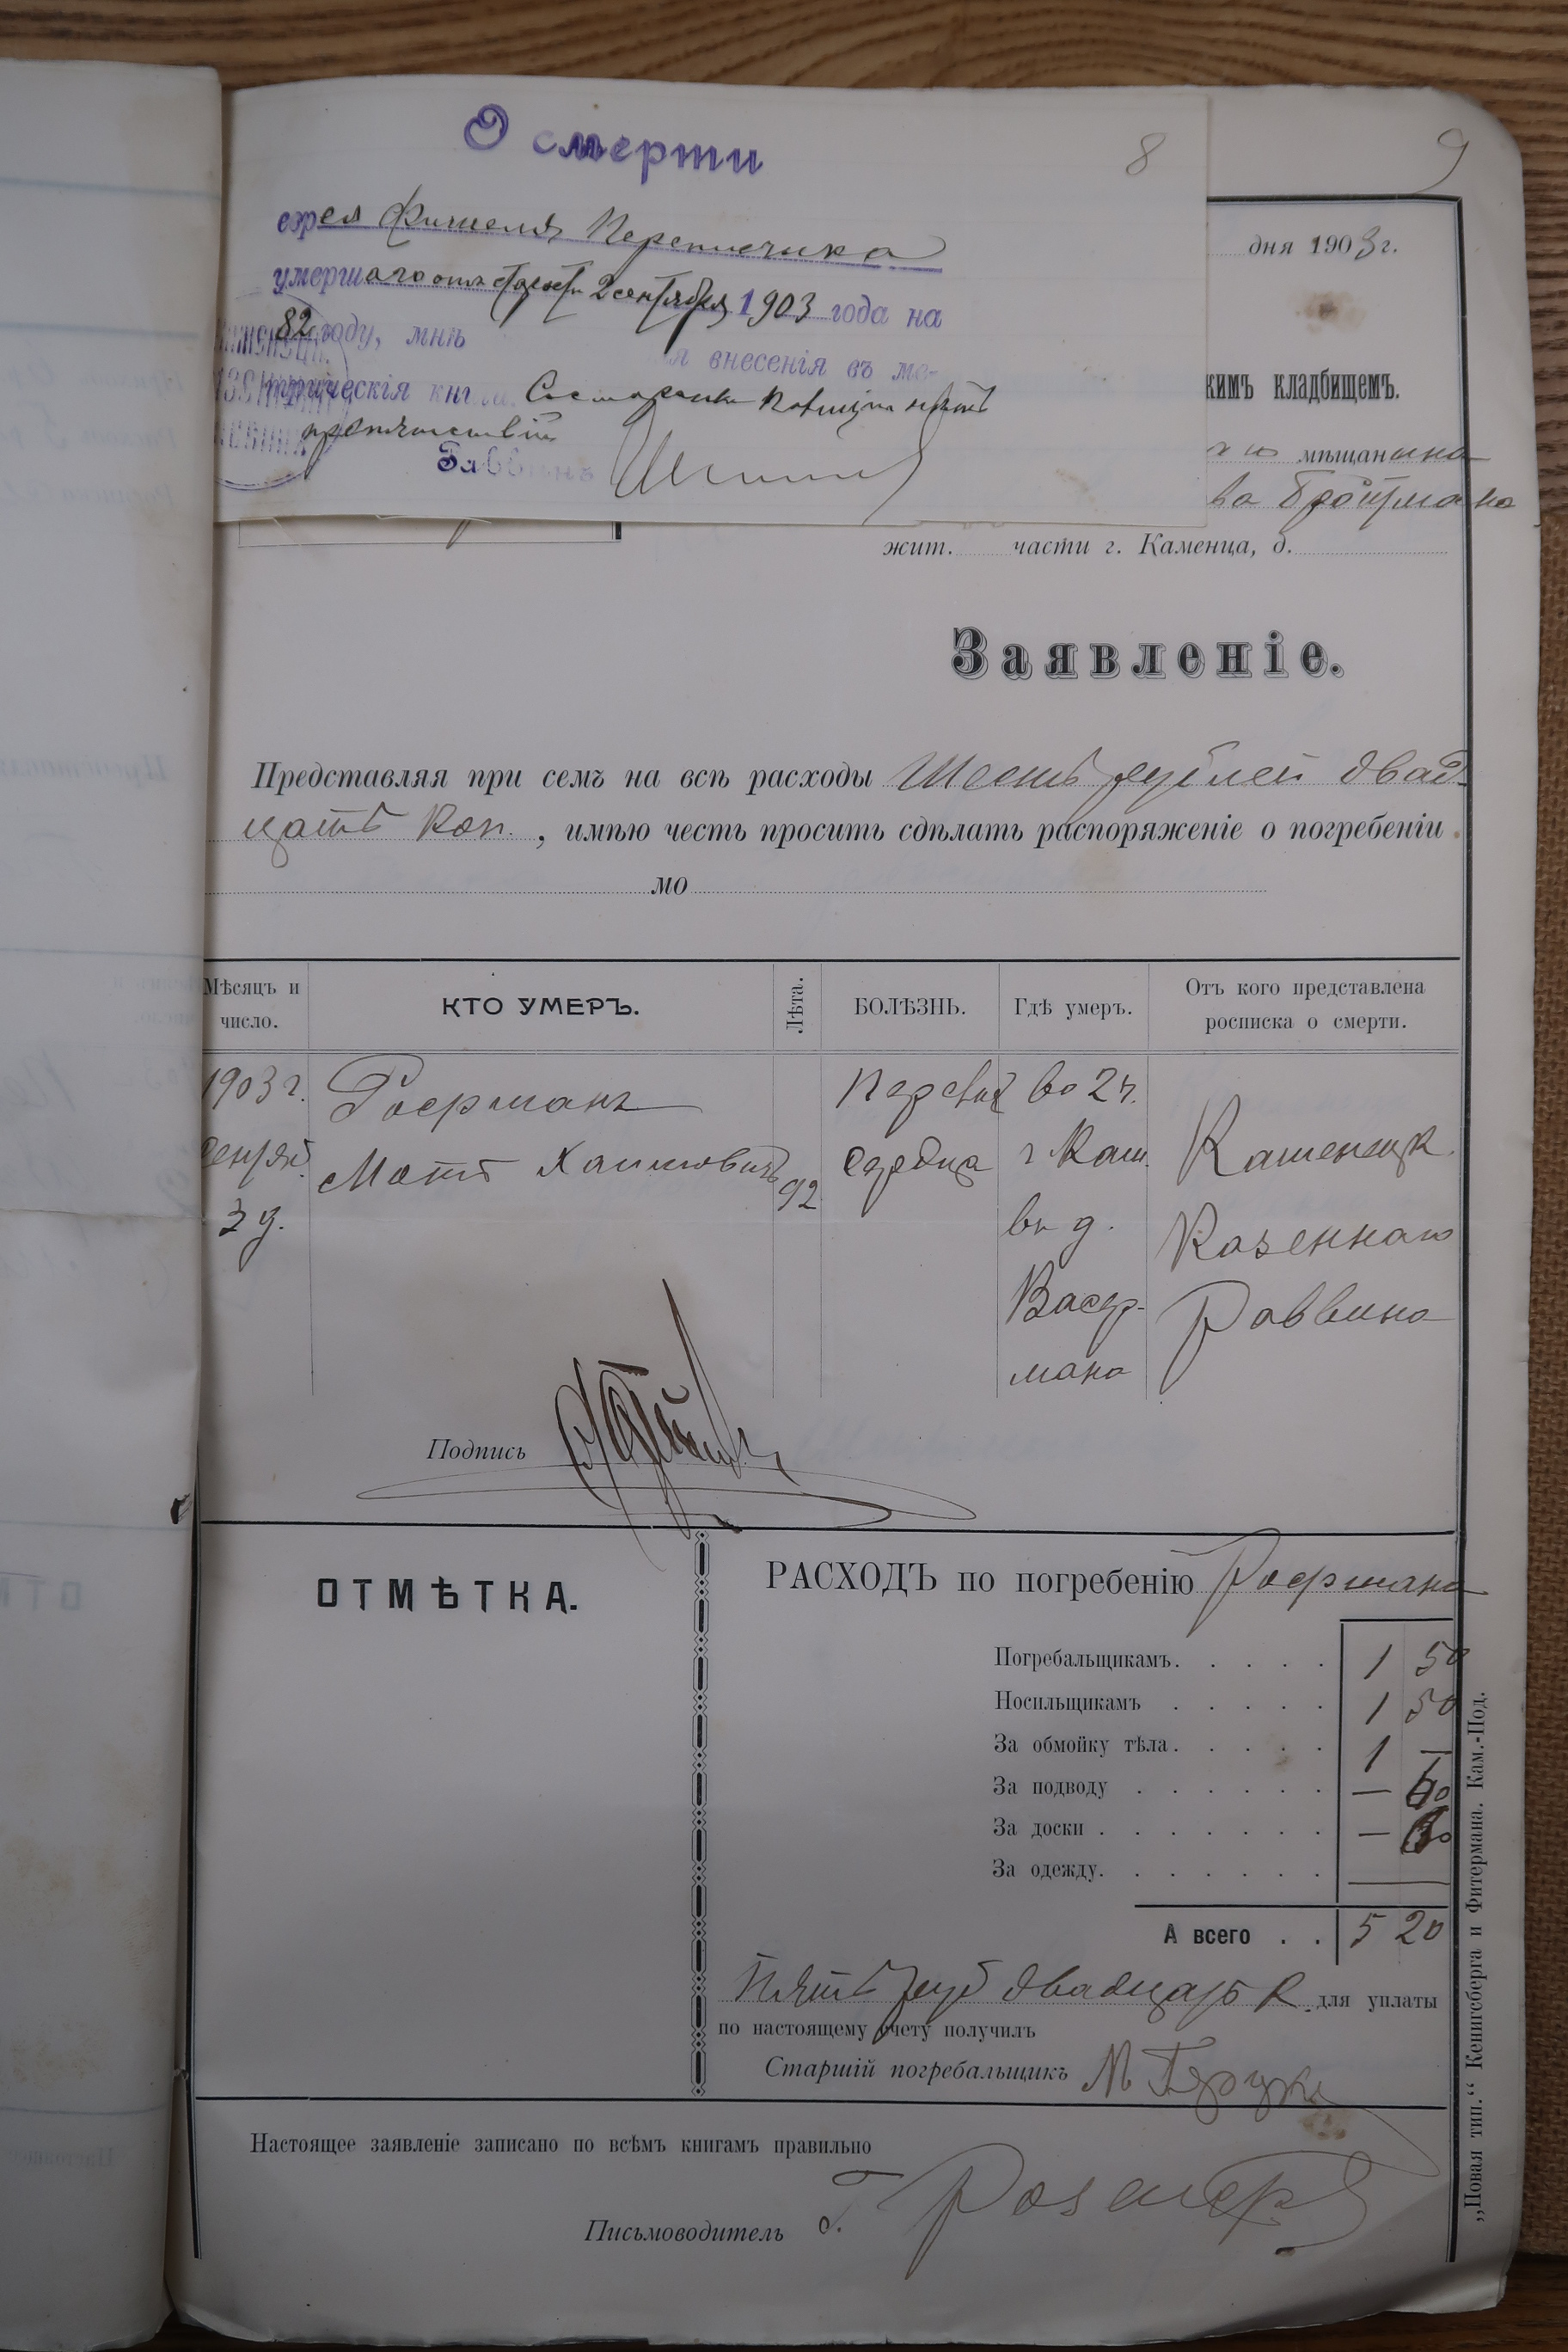 О смерти
8
9
еврея Фишеля Переплетчика
умершаго отъ старости 2 сентября 1903 года на
82 году, мнѣ внесенія въ ме-
трическія кни
препятствій
Раввинъ
дня 1903 г.
кимъ кладбищемъ.
мѣщанина
ва Бройтмана
жит. части г. Каменца, д.
Заявленіе.
Представляя при семъ на всѣ расходы Шесть рублей двад-
цать коп., имѣю честь просить сдѣлать распоряженіе о погребеніи
мо
Мѣсяцъ и число. КТО УМЕРЪ. Лѣта. БОЛѢЗНЬ. Гдѣ умеръ. Отъ кого представлена росписка о смерти.
1903 г. Роерманъ во 2 ч.
Сентяб. Мотъ Хаимовичъ 92 сердца г. Кам. Каменецк.
3 д. въ д. Казеннаго
Васер- Раввина
мана
Подпись
ОТМѢТКА.
РАСХОДЪ по погребенію Роермана
Погребальщикамъ. 1 50
Носильщикамъ 1 50
За обмойку тѣла. 1 —
За подводу — 60
За доски — 60
За одежду.
А всего 5 20
Пять руб двадцать к. для уплаты
по настоящему счету получилъ
Старшій погребальщикъ
Настоящее заявленіе записано по всѣмъ книгамъ правильно
Письмоводитель
„Новая тип.“ Кенигсберга и Фитермана. Кам.-Под.